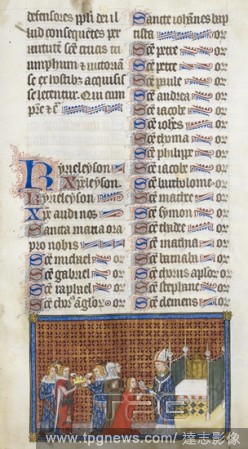 defensores xpi den il
lud consequetes per
uirtute sce crucis tri
umphum et uictoriam
se de hostib; acquisis
se letentur. Qui cum
pre et c
Kyrieleyson
Xpeleyson.
Kyrieleyson
Xpe audi nos
Sancta maria ora
pro nobis
Sce michael or
Sce gabriel or
Sce raphael or
Sce chor; anglor or
Sancte iohannes bap
tista or
Sce petre or
Sce paule or
Sce andrea or
Sce iacobe or
Sce iohes or
Sce thoma or
Sce philippe or
Sce iacobe or
Sce bartholome or
Sce mathee or
Sce symon or
Sce thadee or
Sce mathia or
Sce barnaba or
Sce chorus aplor or
Sce stephane or
Sce clemens or
TPG
www.tpgnews.com/達志影像